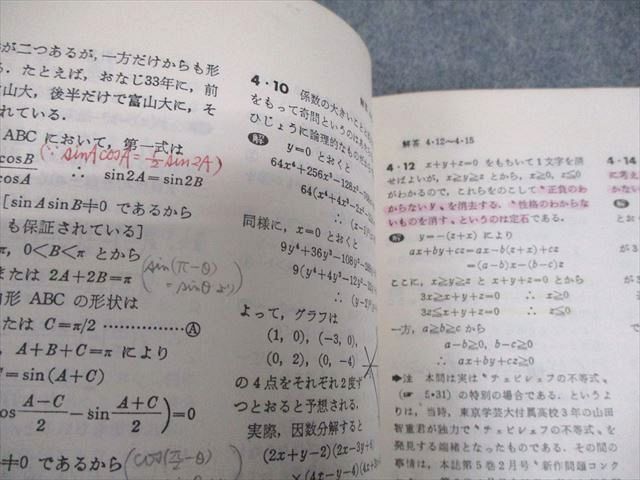 が二つあるが,一方だけからも形
.たとえば,おなじ33年に,前
山大,後半だけで富山大に,そ
れている.
ABCにおいて,第一式は
(∵ sinAcosA=½sin2A)
cosB
cosA
∴ sin2A=sin2B
[sinAsinB≠0 であるから
も保証されている]
π, 0<B<π とから
または 2A+2B=π
(sin(π-θ)
=sinθより)
形 ABC の形状は
たは C=π/2 ……………Ⓐ
, A+B+C=π により
=sin(A+C)
cos A-C/2 - sin A+C/2)=0
≠0 であるから
(cos(π/2-θ)
4・10 係数の大きいこと
をもって奇問というのはあ
ひじょうに論理的なもの
解 y=0 とおくと
64x⁴+256x³-128x²
64(x⁴+4x³-2x²
∴ (x
同様に, x=0 とおくと
9y⁴+36y³-108y²
9(y⁴+4y³-12y²
∴ (y
よって,グラフは
(1, 0), (-3, 0),
(0, 2), (0, -4)
の4点をそれぞれ2度ず
つとおると予想される.
実際,因数分解すると
(2x+y-2)(2x-3y+
×(4x-y-4)(4x+
解答 4・12〜4・15
4・12 x+y+z=0 をもちいて1文字を消
せばよいが, x≧y≧z とから, x≧0, z≦0
がわかるので,これらをのこして〝正負のわ
からないy〟を消去する.〝性格のわからな
いものを消す〟というのは定石である.
解 y=-(z+x) により
ax+by+cz=ax-b(z+x)+cz
=(a-b)x-(b-c)z
ここに, x≧y≧z と x+y+z=0 から
3x≧x+y+z=0 ∴ x≧0
3z≦x+y+z=0 ∴ z≦0
一方, a≧b≧c から
a-b≧0, b-c≧0
∴ ax+by+cz≧0
➡注 本問は実は〝チェビシェフの不等式〟
(☞ 5・31) の特別の場合である.というよ
りは,当時,東京学芸大付属高校3年の山田
智重君が独力で〝チェビシェフの不等式〟を
発見する端緒となったものである.その間の
事情は,本誌第5巻2月号〝新作問題コンク
4・14
に考え